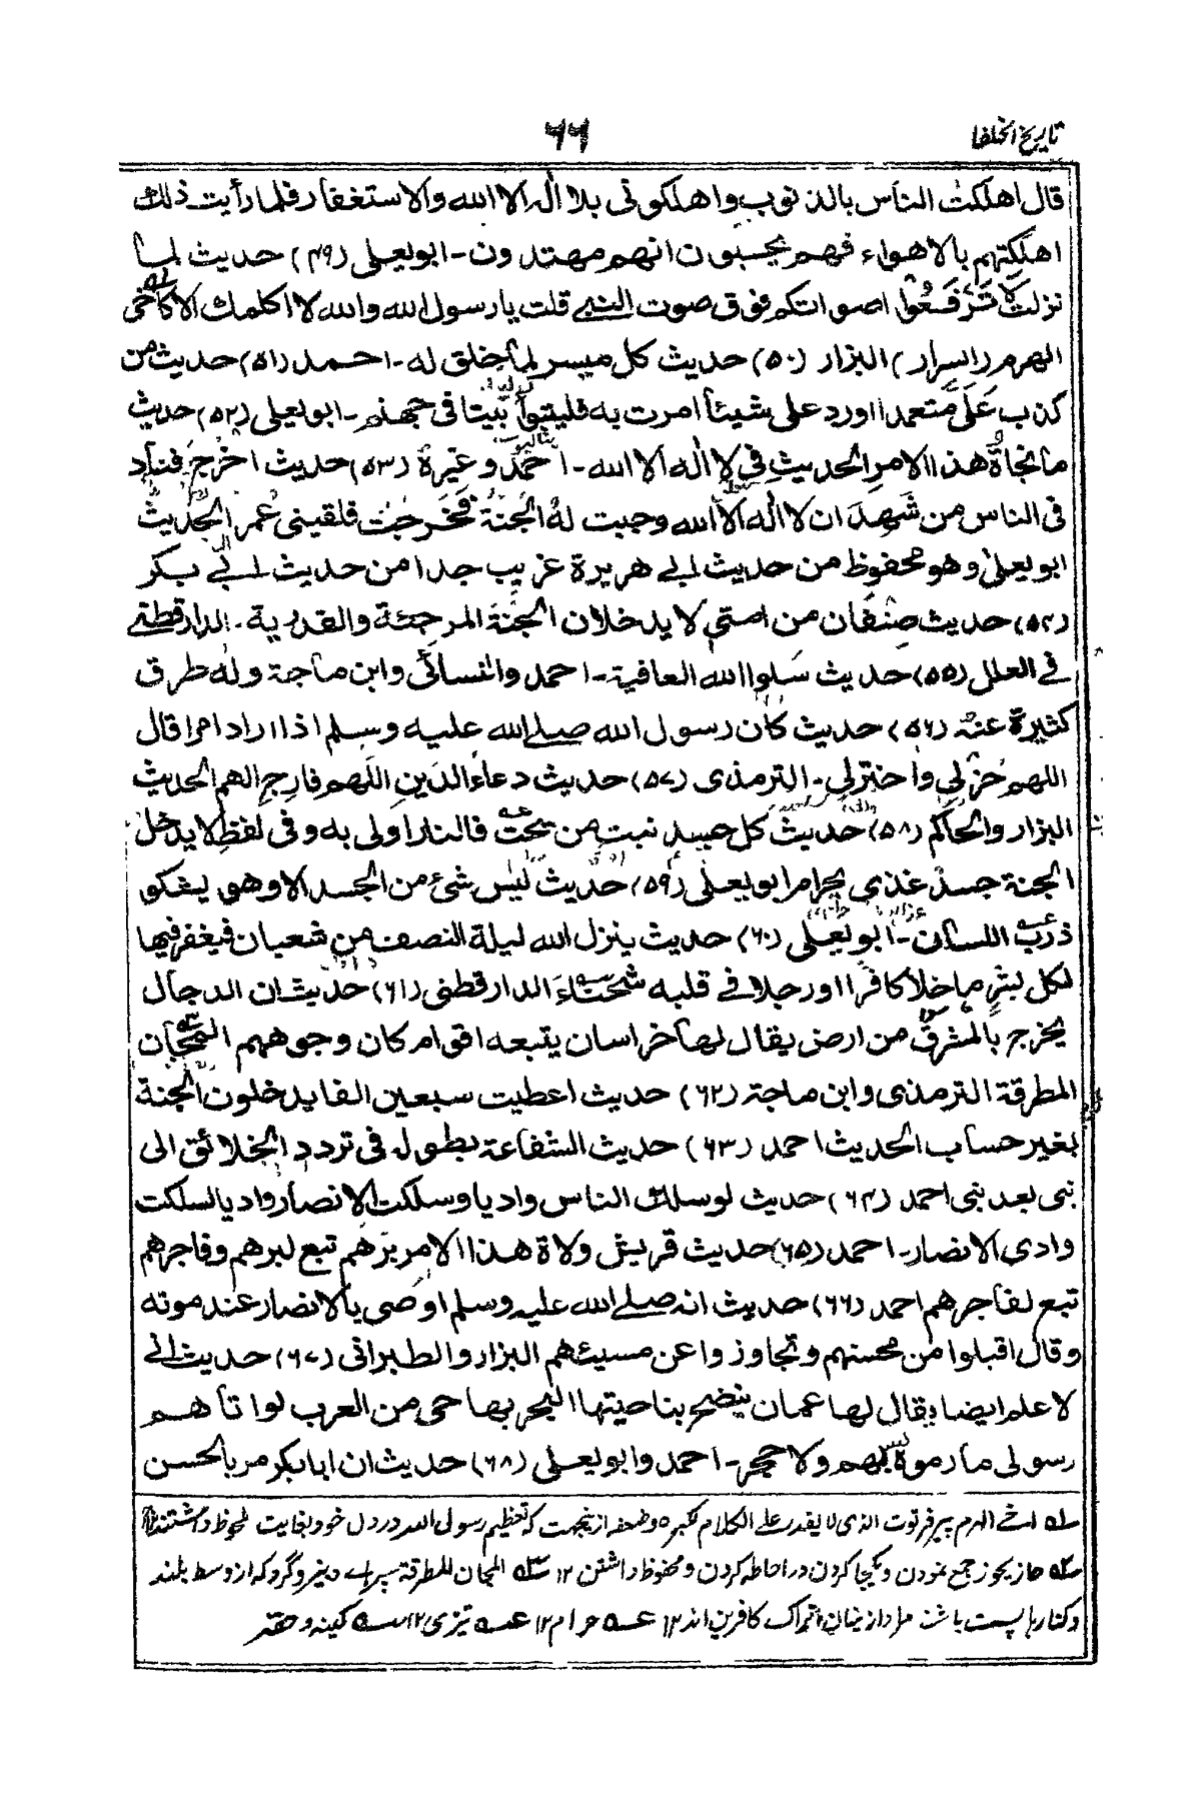 تاريخ الخلفا
٦٦
قال اهلكت الناس بالذنوب واهلكونى بلا اله الا الله والاستغفار فلما رأيت ذلك
اهلكتهم بالاهواء فهم يحسبون انهم مهتدون - ابويعلى (٤٩) حديث لما
نزلت لا تَرْفَعُوا اصواتكم فوق صوت النبي قلت يا رسول الله والله لا اكلمك الا كاخى
الهرم (السرار) البزار (٥٠) حديث كل ميسر لما خلق له - احمد (٥١) حديث من
كذب عَلَىَّ متعمدا اورد على شيئا امرت به فليتبوأ بيتا فى جهنم - ابويعلى (٥٢) حديث
ما نجاة هذا الامر الحديث فى لا اله الا الله - احمد وغيرة (٥٣) حديث اخرج فناد
فى الناس من شهد ان لا اله الا الله وجبت له الجنة فخرجت فلقينى عمر الحديث
ابويعلى وهو محفوظ من حديث ابي هريرة غريب جدا من حديث ابي بكر
(٥٤) حديث صنفان من امتى لا يدخلان الجنة المرجئة والقدرية - الدارقطني
في العلل (٥٥) حديث سلوا الله العافية - احمد والنسائى وابن ماجة وله طرق
كثيرة عنه (٥٦) حديث كان رسول الله صلے الله عليه وسلم اذا اراد امرا قال
اللهم خرلي واخترلي - الترمذى (٥٧) حديث دعاء الدَين اللهم فارج الهم الحديث
البزار والحاكم (٥٨) حديث كل جسد نبت من سحت فالنار اولى به وفى لفظ لا يدخل
الجنة جسد غذي بحرام ابويعلى (٥٩) حديث ليس شئ من الجسد الا وهو يشكو
ذرب اللسان - ابويعلى (٦٠) حديث ينزل الله ليلة النصف من شعبان فيغفر فيها
لكل بشر ما خلا كافرا اورجلا في قلبه شحناء الدارقطنى (٦١) حديث ان الدجال
يخرج بالمشرق من ارض يقال لها خراسان يتبعه اقوام كان وجوههم المجان
المطرقة الترمذى وابن ماجة (٦٢) حديث اعطيت سبعين الفا يدخلون الجنة
بغير حساب الحديث احمد (٦٣) حديث الشفاعة بطوله فى تردد الخلائق الى
نبى بعد نبى احمد (٦٤) حديث لو سلك الناس واديا وسلكت الانصار واديا لسلكت
وادى الانصار - احمد (٦٥) حديث قريش ولاة هذا الامر برهم تبع لبرهم وفاجرهم
تبع لفاجرهم احمد (٦٦) حديث انه صلے الله عليه وسلم اوصى بالانصار عند موته
وقال اقبلوا من محسنهم وتجاوزوا عن مسيئهم البزار والطبرانى (٦٧) حديث انى
لا علم ارضا يقال لها عمان ينضح بناحيتها البحر بها حى من العرب لو اتاهم
رسولى ما رموه بسهم ولا حجر - احمد وابويعلى (٦٨) حديث ان ابابكر مر بالحسن
له اخي الهرم پير فرتوت الذى لا يقدر على الكلام لكبره وضعفه ازينجهت كه تعظيم رسول الله در دل خود بغايت ملحوظ داشتند ١٢
سله حاز يحوز جمع نمودن ويكجا كردن در احاطه كردن ومحفوظ داشتن ١٢ سله المجان المطرقة سپرهاے دبيز وگرد كه از وسط بلند
وكنارها پست باشند مراد ازينان اتراك كافرين اند ١٢ عه حرام ١٢ عه تيزى ١٢ سه كينه وحقد